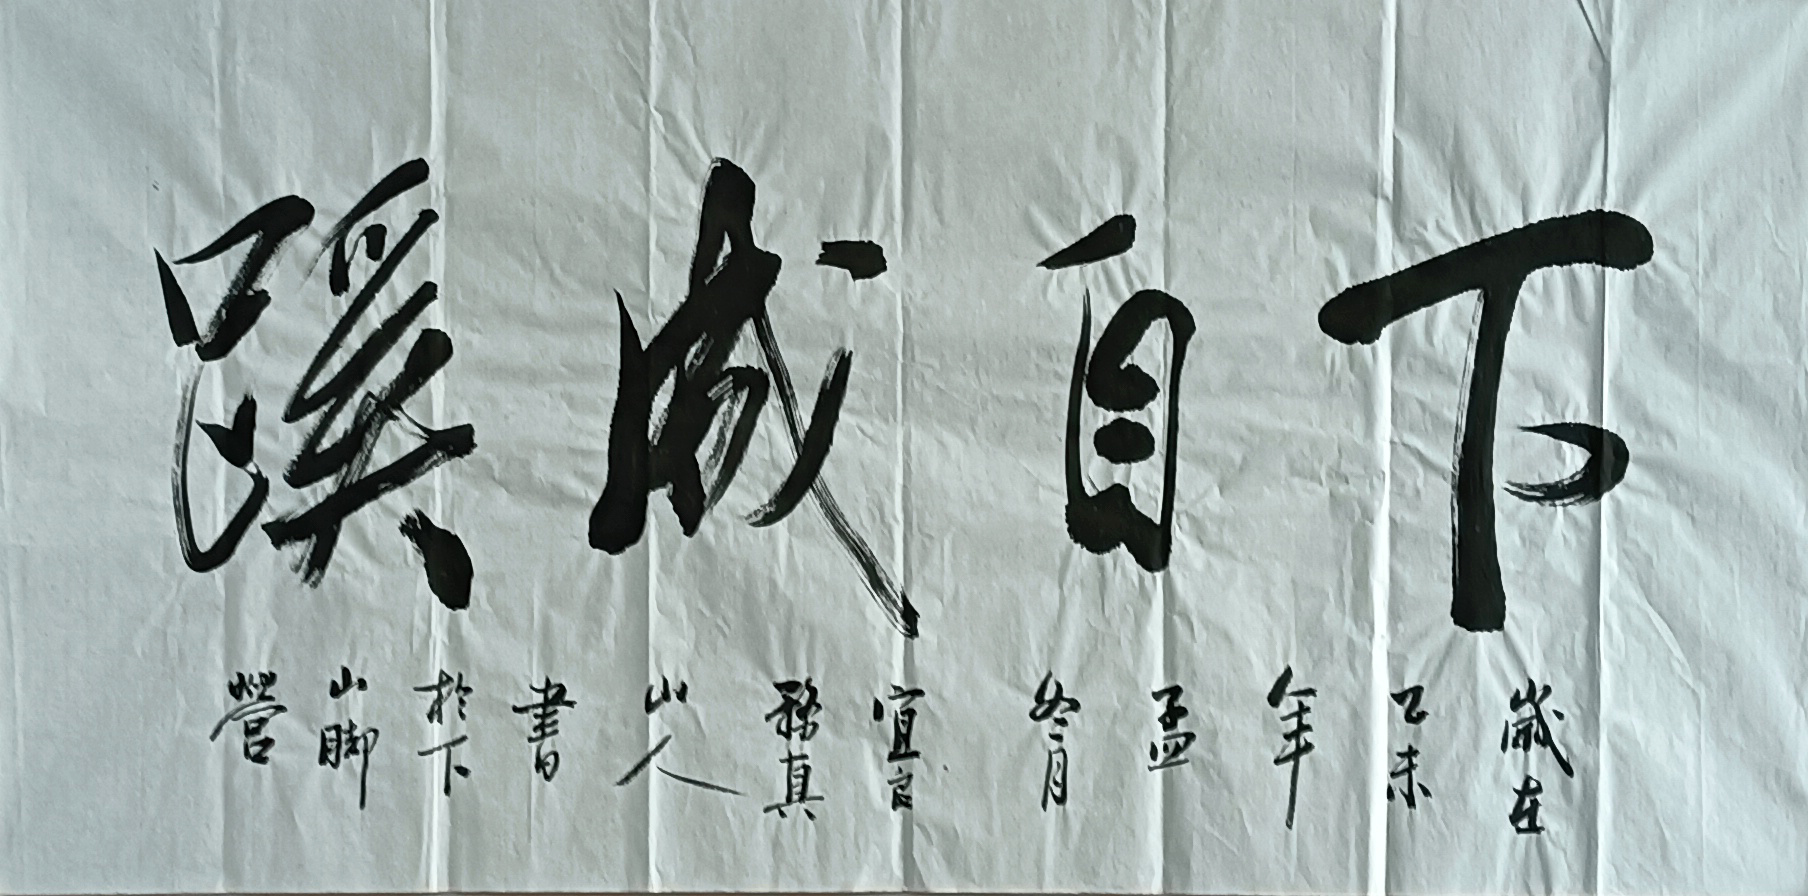 下自成蹊
歲在
乙未
年
孟
冬月
宜宫
務真
山人
書
於下
山脚
營